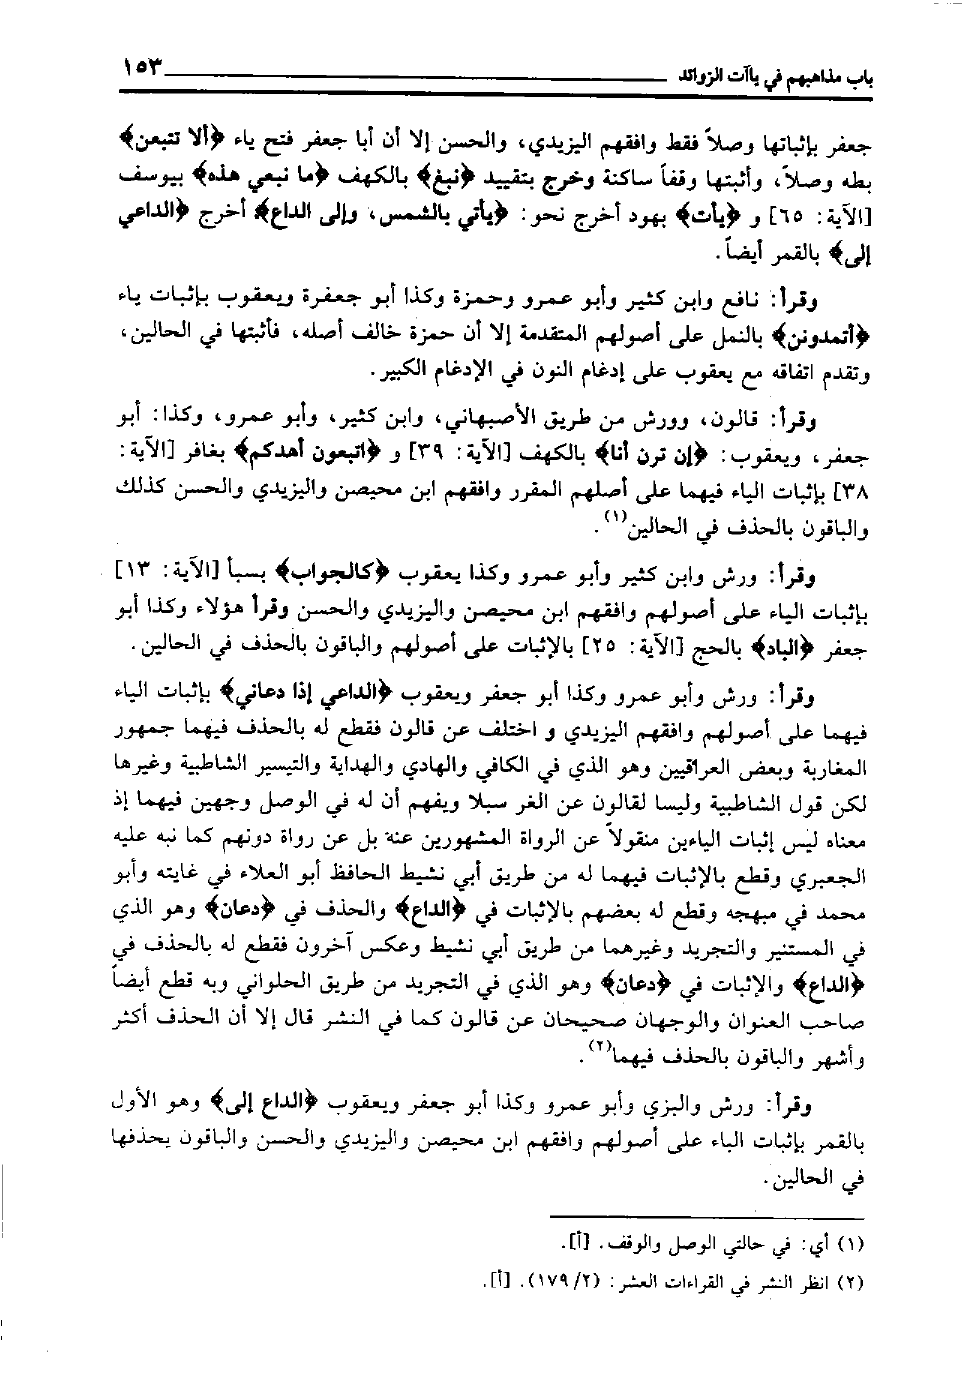 باب مذاهبهم في ياآت الزوائد ١٥٣
جعفر بإثباتها وصلاً فقط وافقهم اليزيدي، والحسن إلا أن أبا جعفر فتح ياء ﴿ألا تتبعن﴾
بطه وصلاً، وأثبتها وقفاً ساكنة وخرج بتقييد ﴿نبغ﴾ بالكهف ﴿ما نبغي هذه﴾ بيوسف
[الآية: ٦٥] و ﴿يأت﴾ بهود أخرج نحو: ﴿يأتي بالشمس، وإلى الداع﴾ أخرج ﴿الداعي
إلى﴾ بالقمر أيضاً.
وقرأ: نافع وابن كثير وأبو عمرو وحمزة وكذا أبو جعفرة ويعقوب بإثبات ياء
﴿أتمدونن﴾ بالنمل على أصولهم المتقدمة إلا أن حمزة خالف أصله، فأثبتها في الحالين،
وتقدم اتفاقه مع يعقوب على إدغام النون في الإدغام الكبير.
وقرأ: قالون، وورش من طريق الأصبهاني، وابن كثير، وأبو عمرو، وكذا: أبو
جعفر، ويعقوب: ﴿إن ترن أنا﴾ بالكهف [الآية: ٣٩] و ﴿اتبعون أهدكم﴾ بغافر [الآية:
٣٨] بإثبات الياء فيهما على أصلهم المقرر وافقهم ابن محيصن واليزيدي والحسن كذلك
والباقون بالحذف في الحالين(١).
وقرأ: ورش وابن كثير وأبو عمرو وكذا يعقوب ﴿كالجواب﴾ بسبأ [الآية: ١٣]
بإثبات الياء على أصولهم وافقهم ابن محيصن واليزيدي والحسن وقرأ هؤلاء وكذا أبو
جعفر ﴿الباد﴾ بالحج [الآية: ٢٥] بالإثبات على أصولهم والباقون بالحذف في الحالين.
وقرأ: ورش وأبو عمرو وكذا أبو جعفر ويعقوب ﴿الداعي إذا دعاني﴾ بإثبات الياء
فيهما على أصولهم وافقهم اليزيدي و اختلف عن قالون فقطع له بالحذف فيهما جمهور
المغاربة وبعض العراقيين وهو الذي في الكافي والهادي والهداية والتيسير الشاطبية وغيرها
لكن قول الشاطبية وليسا لقالون عن الغر سبلا ويفهم أن له في الوصل وجهين فيهما إذ
معناه ليس إثبات الياءين منقولاً عن الرواة المشهورين عنه بل عن رواة دونهم كما نبه عليه
الجعبري وقطع بالإثبات فيهما له من طريق أبي نشيط الحافظ أبو العلاء في غايته وأبو
محمد في مبهجه وقطع له بعضهم بالإثبات في ﴿الداع﴾ والحذف في ﴿دعان﴾ وهو الذي
في المستنير والتجريد وغيرهما من طريق أبي نشيط وعكس آخرون فقطع له بالحذف في
﴿الداع﴾ والإثبات في ﴿دعان﴾ وهو الذي في التجريد من طريق الحلواني وبه قطع أيضاً
صاحب العنوان والوجهان صحيحان عن قالون كما في النشر قال إلا أن الحذف أكثر
وأشهر والباقون بالحذف فيهما(٢).
وقرأ: ورش والبزي وأبو عمرو وكذا أبو جعفر ويعقوب ﴿الداع إلى﴾ وهو الأول
بالقمر بإثبات الياء على أصولهم وافقهم ابن محيصن واليزيدي والحسن والباقون يحذفها
في الحالين.
(١) أي: في حالتي الوصل والوقف. [أ].
(٢) انظر النشر في القراءات العشر: (١٧٩/٢). [أ].